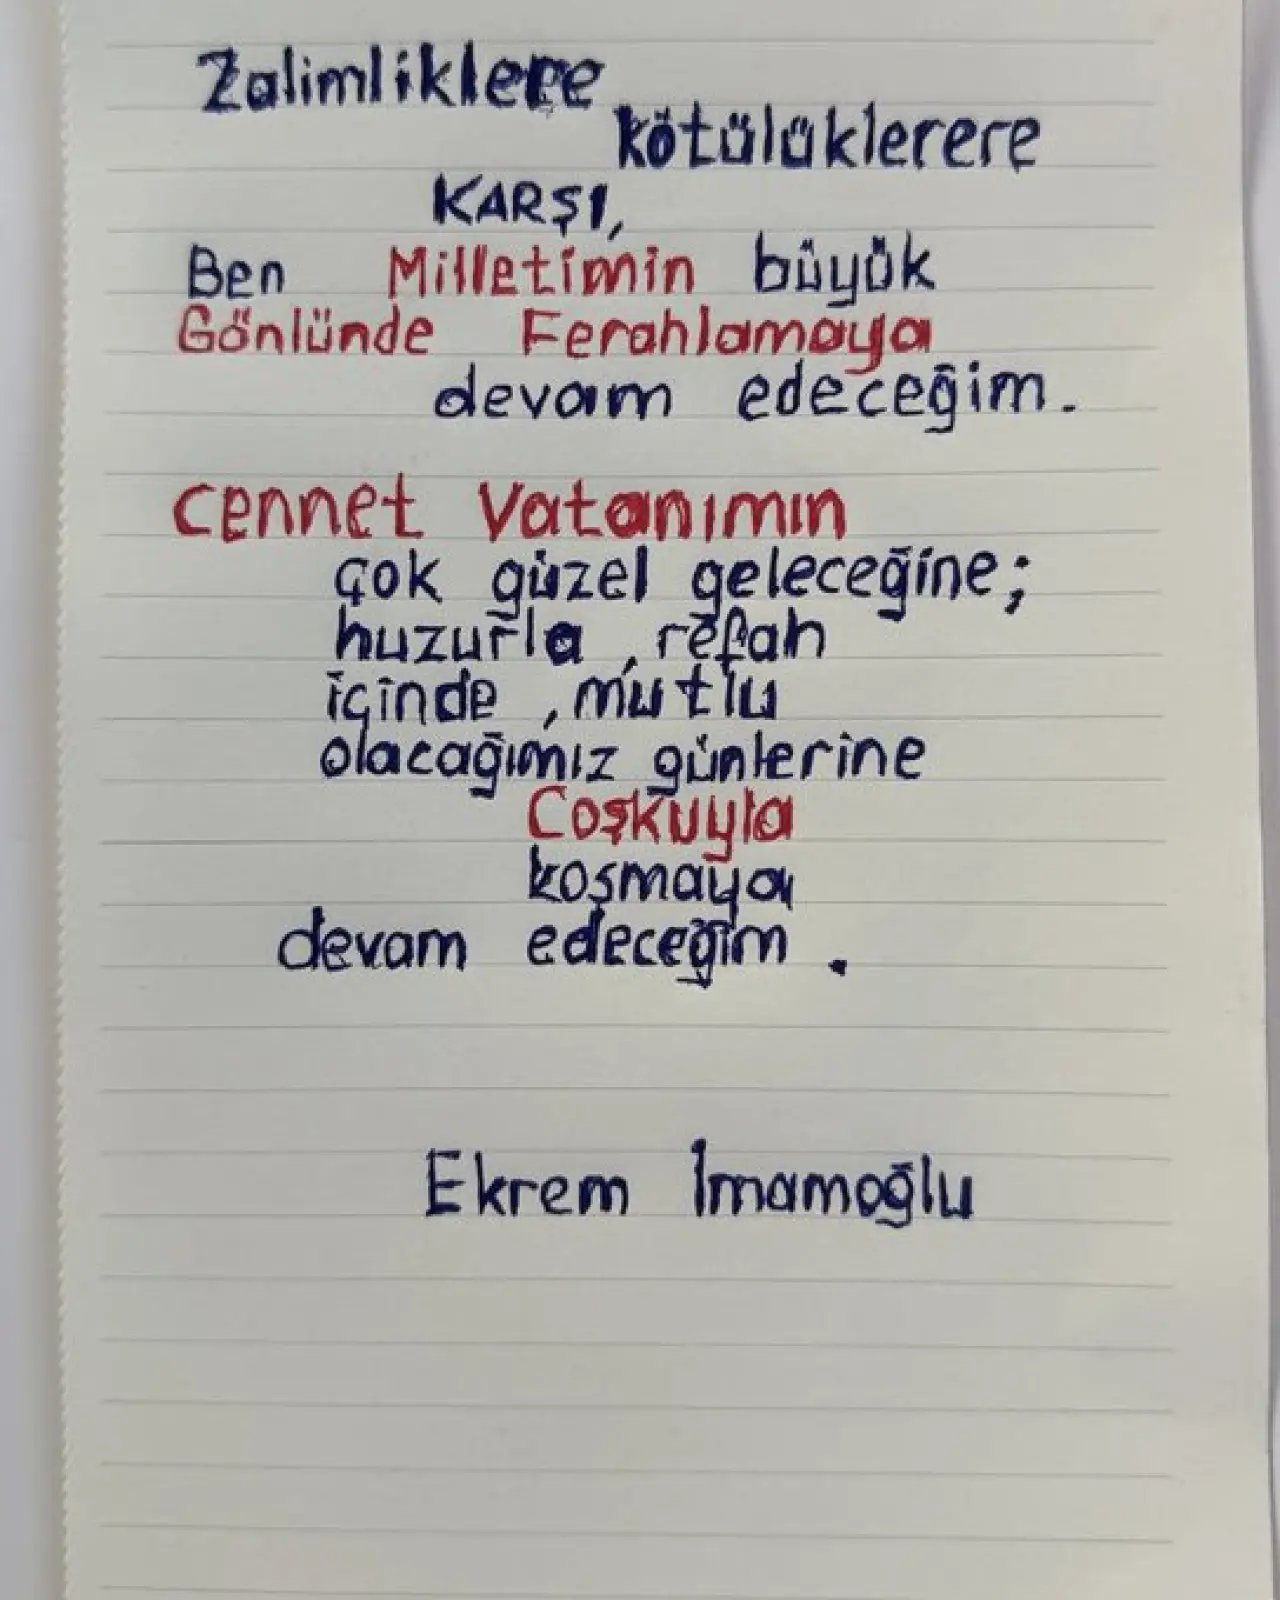 Zalimliklere
kötülüklerere
KARŞI,
Ben Milletimin büyük
Gönlünde Ferahlamaya
devam edeceğim.
Cennet Vatanımın
çok güzel geleceğine;
huzurla, refah
içinde, mutlu
olacağımız günlerine
Coşkuyla
koşmaya
devam edeceğim.
Ekrem İmamoğlu